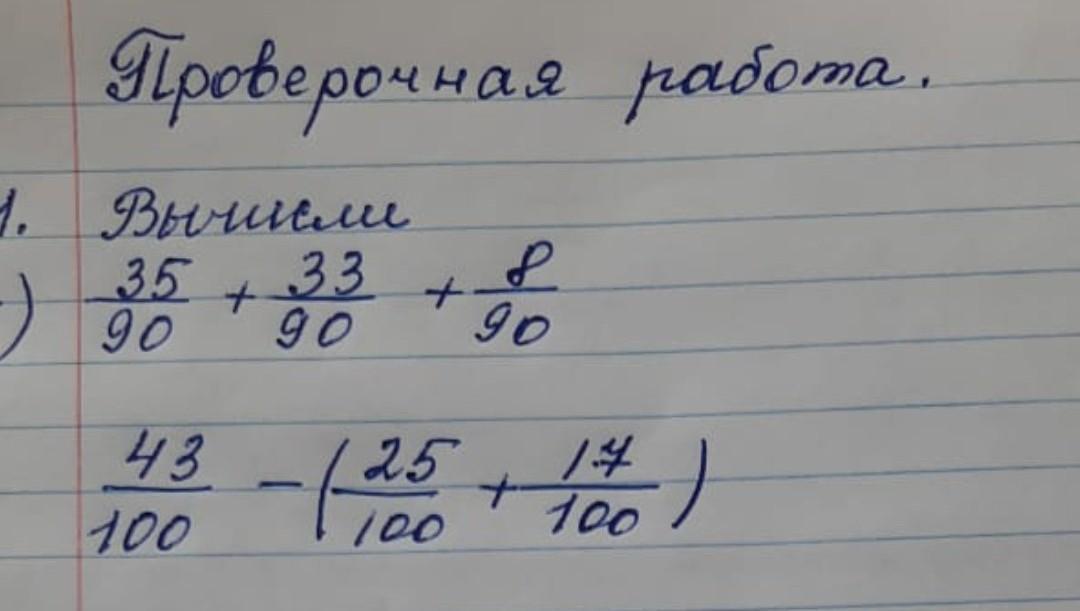 Проверочная работа.
1. Вычисли
) 35/90 + 33/90 + 8/90
43/100 - (25/100 + 17/100)